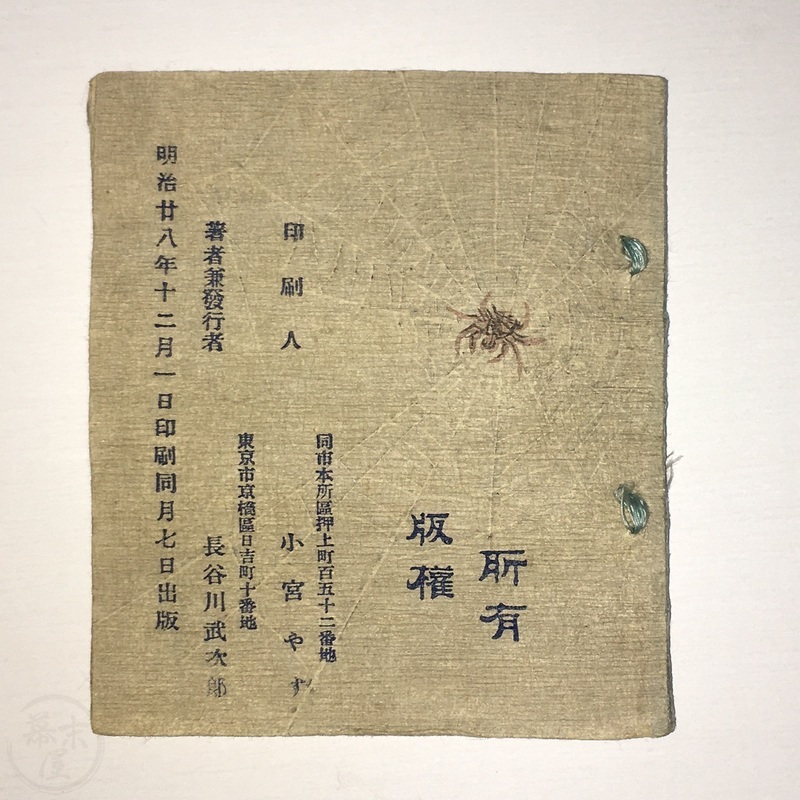 明治廿八年十二月一日印刷同月七日出版
著者兼發行者 長谷川武次郎
東京市京橋區日吉町十番地
印刷人 小宮やす
同市本所區押上町百五十二番地
版權
所有
幕末屋